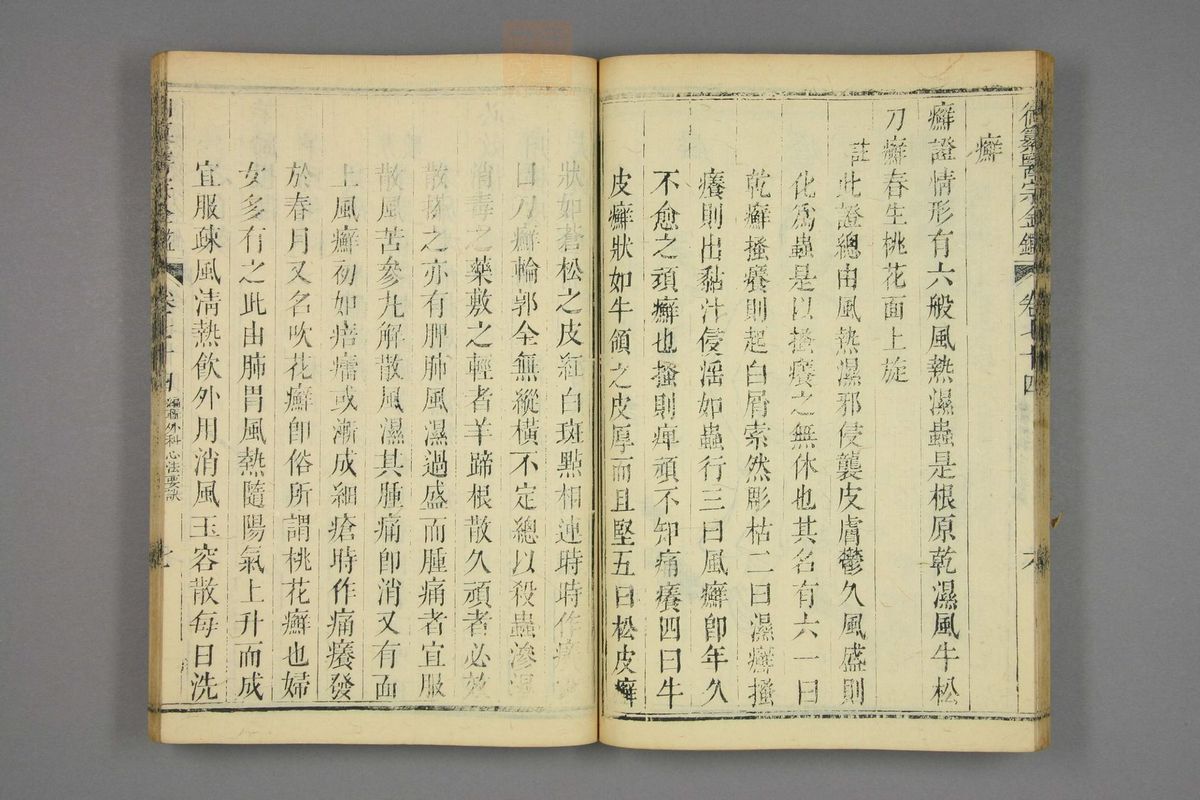 御纂醫宗金鑑 卷七十四 六
癬
癬證情形有六般風熱濕蟲是根原乾濕風牛松
刀癬春生桃花面上旋
註 此證總由風熱濕邪侵襲皮膚鬱久風盛則
化為蟲是以搔癢之無休也其名有六一曰
乾癬搔癢則起白屑索然彫枯二曰濕癬搔
癢則出黏汁侵淫如蟲行三曰風癬卽年久
不愈之頑癬也搔則痺頑不知痛癢四曰牛
皮癬狀如牛領之皮厚而且堅五曰松皮癬
狀如蒼松之皮紅白斑點相連時時作癢
曰刀癬輪郭全無縱橫不定總以殺蟲滲濕
消毒之藥敷之輕者羊蹄根散久頑者必效
散搽之亦有脾肺風濕過盛而腫痛者宜服
散風苦參丸解散風濕其腫痛卽消又有面
上風癬初如㾦㿔或漸成細瘡時作痛癢發
於春月又名吹花癬卽俗所謂桃花癬也婦
女多有之此由肺胃風熱隨陽氣上升而成
宜服疎風清熱飲外用消風玉容散每日洗
卷七十四 編輯外科心法要訣 七